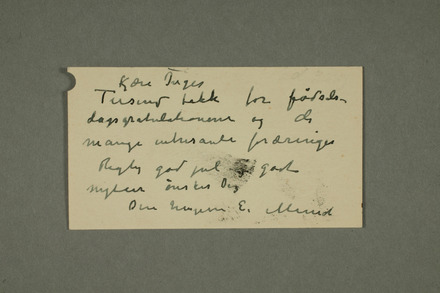 Kjære Inger
Tusind takk for fødsels-
dagsgratulationene og de
mange interesante foræringer
Rigtig god jul og godt
nytaar ønskes Dig
Din E. Munch